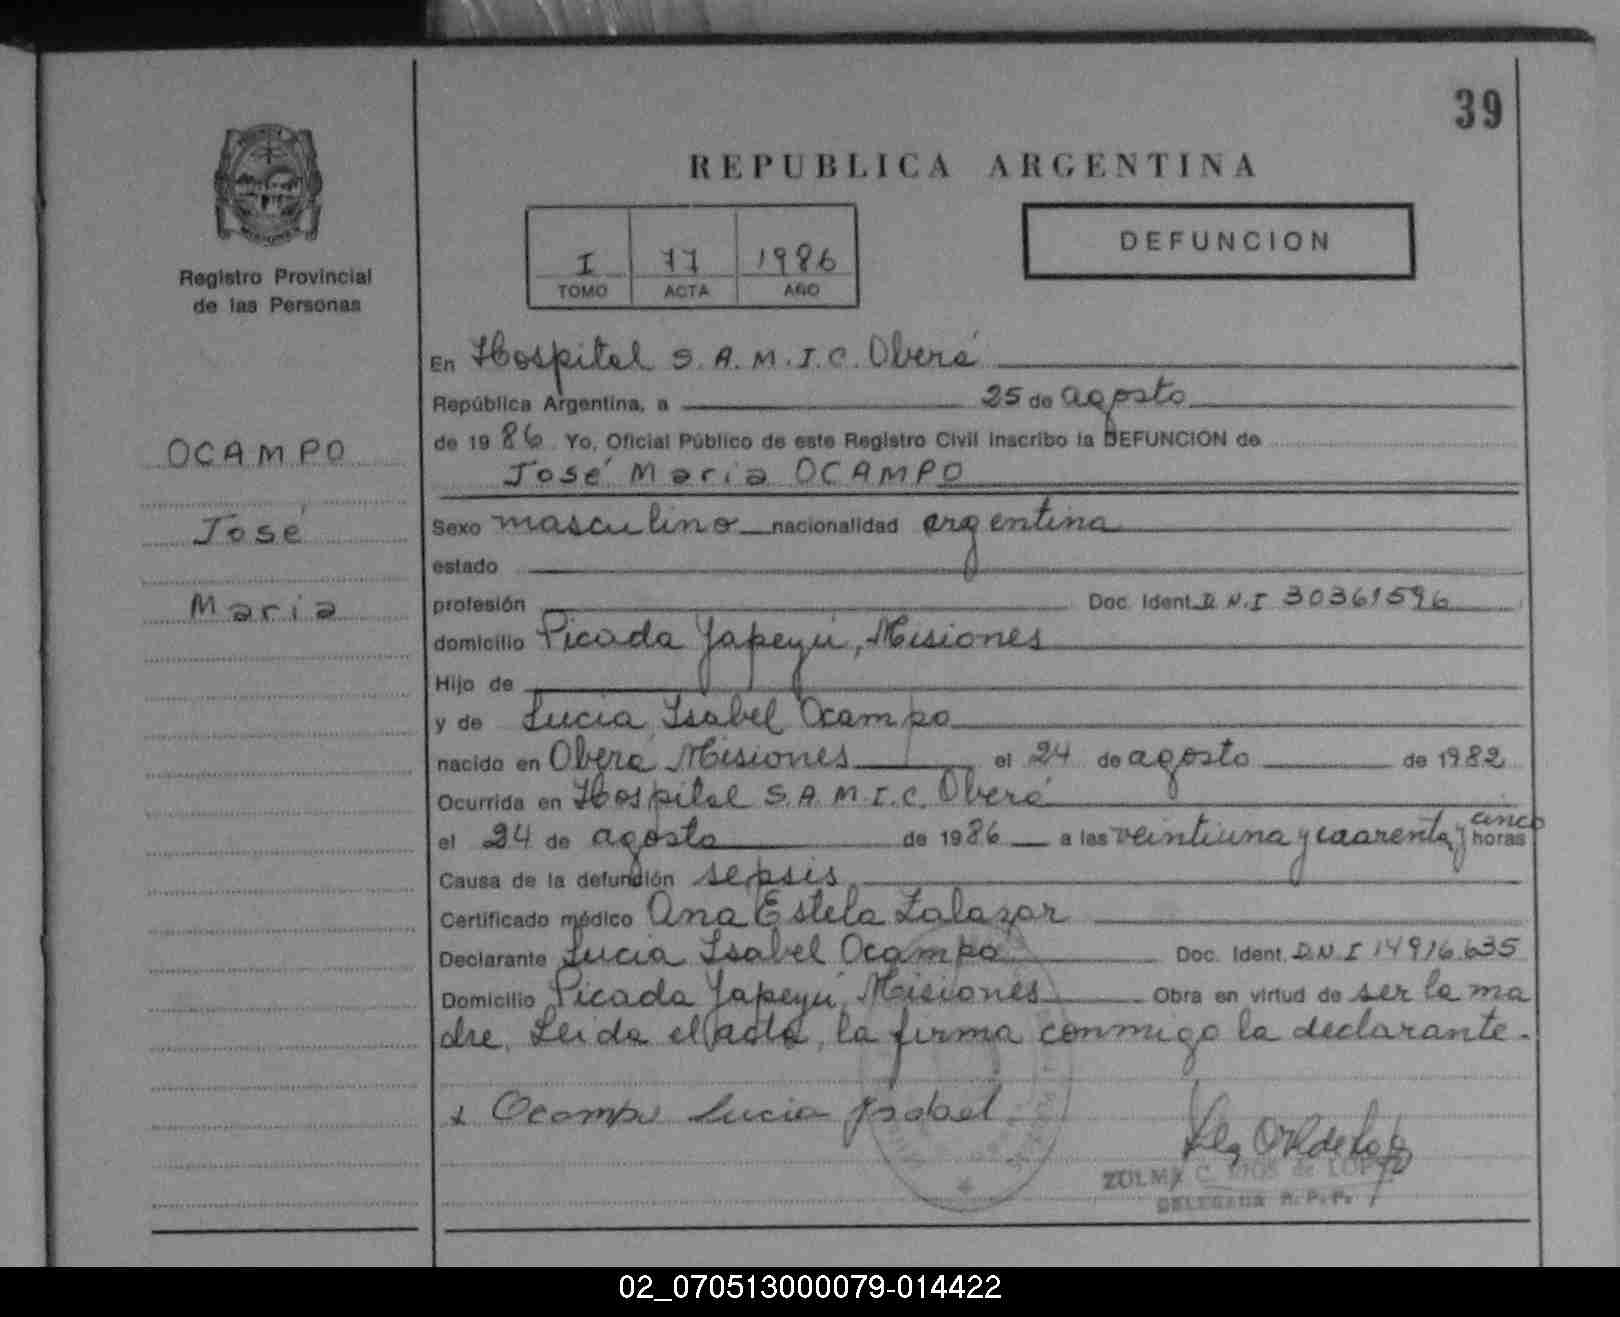 39
REPUBLICA ARGENTINA
DEFUNCION
I 77 1986
TOMO ACTA AÑO
Registro Provincial
de las Personas
OCAMPO
José
Maria
En Hospital S.A.M.I.C. Oberá
República Argentina, a 25 de agosto
de 1986. Yo, Oficial Público de este Registro Civil inscribo la DEFUNCION de
José Maria OCAMPO
Sexo masculino nacionalidad argentina
estado
profesión Doc. Ident. D.N.I 30361596
domicilio Picada Yapeyú, Misiones
Hijo de
y de Lucia Isabel Ocampo
nacido en Oberá Misiones el 24 de agosto de 1982
Ocurrida en Hospital S.A.M.I.C. Oberá
el 24 de agosto de 1986 a las veintiuna y cuarenta y cinco horas
Causa de la defunción sepsis
Certificado médico Ana Estela Zalazar
Declarante Lucia Isabel Ocampo Doc. Ident. D.N.I 14916.635
Domicilio Picada Yapeyú, Misiones Obra en virtud de ser la ma
dre. Leida el acta, la firma conmigo la declarante.
Ocampo Lucia Isabel
ZULMA C. de LOPEZ
DELEGADA R.P.P.
02_070513000079-014422